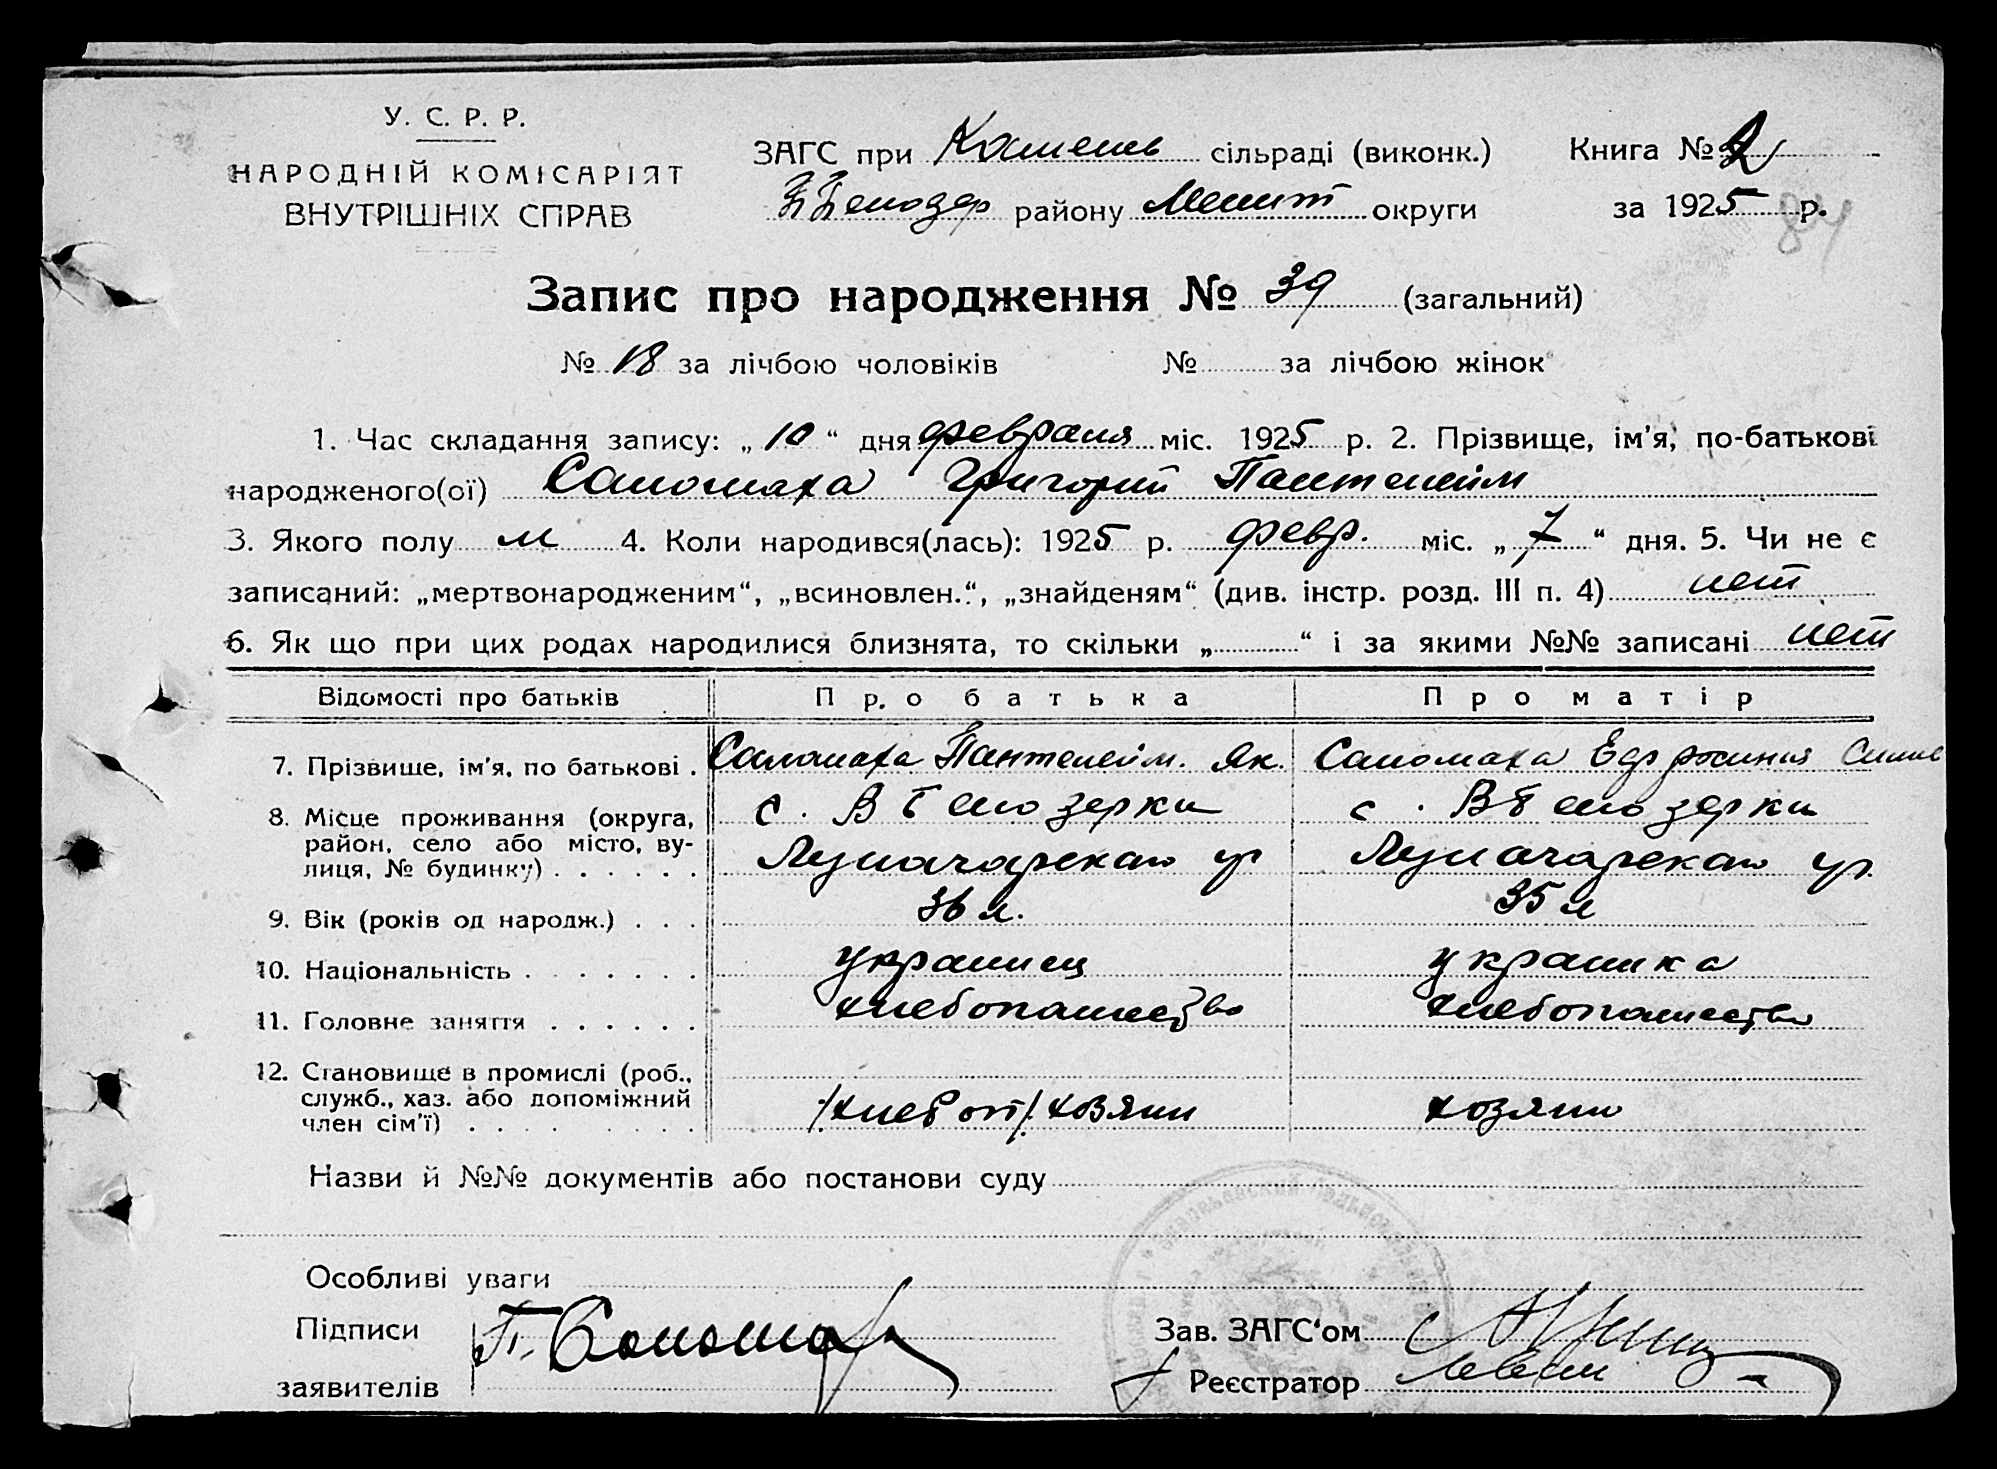 У. С. Р. Р.
НАРОДНІЙ КОМІСАРІЯТ
ВНУТРІШНІХ СПРАВ
ЗАГС при Камень сільраді (виконк.) Книга № 2
району Мелит округи за 1925 р.
84
Запис про народження № 39 (загальний)
№ 18 за лічбою чоловіків № за лічбою жінок
1. Час складання запису: „ 10 “ дня февраля міс. 1925 р. 2. Прізвище, ім'я, по-батькові
народженого(ої) Саломаха Григорий Пантелейм
3. Якого полу м 4. Коли народився(лась): 1925 р. февр. міс. „ 7 “ дня. 5. Чи не є
записаний: „мертвонародженим“, „всиновлен.“, „знайденям“ (див. інстр. розд. III п. 4) нет
6. Як що при цих родах народилися близнята, то скільки „ “ і за якими №№ записані нет
Відомості про батьків Про батька Про матір
7. Прізвище, ім'я, по батькові . Саломаха Пантелейм. Як. Саломаха
8. Місце проживання (округа, с. В Белозерки с. В Белозерки
район, село або місто, ву-
лиця, № будинку) . . . . . . Луначарская ул Луначарская ул.
9. Вік (років од народж.) . . . 36 л. 35 л
10. Національність . . . . . . . украинец украинка
11. Головне заняття . . . . . . хлебопашество хлебопашество
12. Становище в промислі (роб.,
служб., хаз. або допоміжний хозяин хозяин
член сім'ї) . . . . . . . . .
Назви й №№ документів або постанови суду
Особливі уваги
Підписи П. Саломаха Зав. ЗАГС‘ом
заявителів Реєстратор